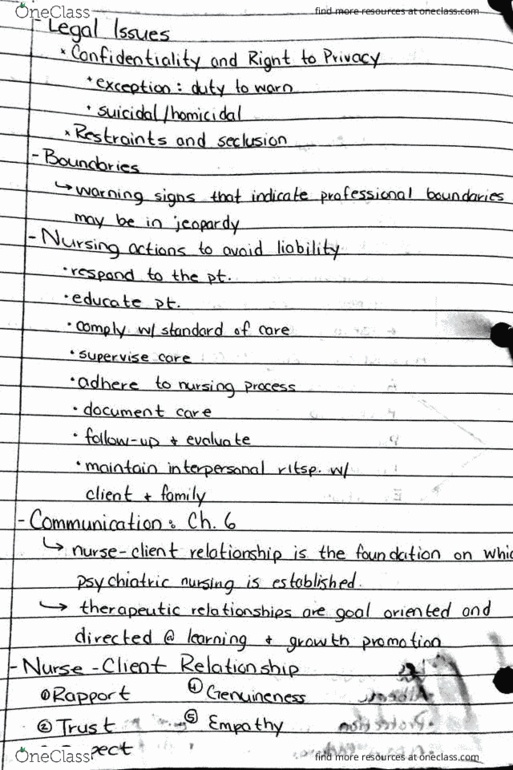 OneClass
find more resources at oneclass.com
- Legal Issues
× Confidentiality and Right to Privacy
* exception: duty to warn
• suicidal/homicidal
× Restraints and seclusion
- Boundaries
↳ warning signs that indicate professional boundaries
may be in jeopardy
- Nursing actions to avoid liability
• respond to the pt.
• educate pt.
• comply w/ standard of care
• supervise care
• adhere to nursing process
• document care
• follow-up + evaluate
• maintain interpersonal rltsp. w/
client + family
- Communication: Ch. 6
↳ nurse-client relationship is the foundation on whic
psychiatric nursing is established.
↳ therapeutic relationships are goal oriented and
directed @ learning + growth promotion
- Nurse-Client Relationship
① Rapport ④ Genuineness
② Trust ⑤ Empathy
pect
OneClass
find more resources at oneclass.com